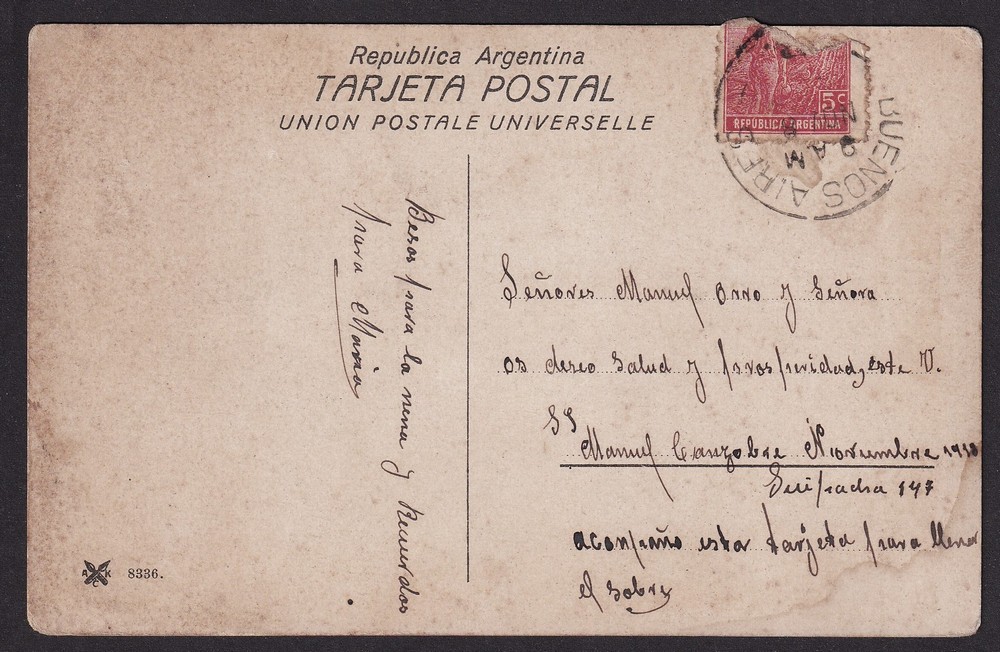 Republica Argentina
TARJETA POSTAL
UNION POSTALE UNIVERSELLE
5c
REPUBLICA ARGENTINA
BUENOS AIRES
9 AM
Besos para la nena y Recuerdos
para Maria
Señores Manuel Orro y Señora
os deseo salud y prosperidad, este V.
SS
Manuel Canzobre Noviembre
Suipacha 147
acompaño esta tarjeta para llenar
el sobre
A K
C
8336.